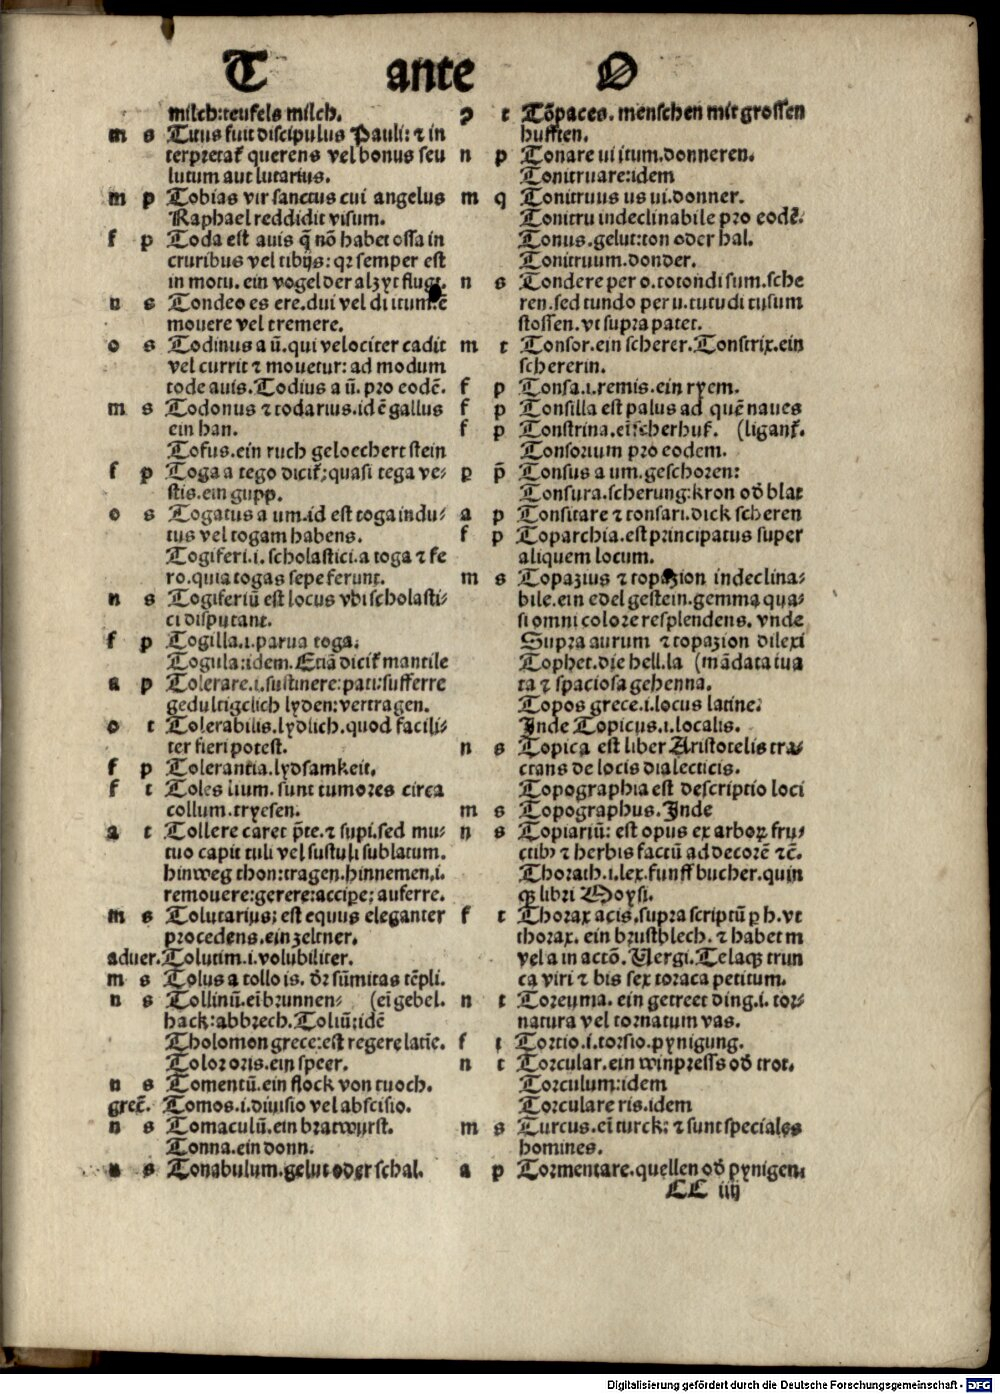 T ante O
milch:teufels milch.
m s Titus fuit discipulus Pauli: ⁊ in
terpretat᷑ querens vel bonus seu
lutum aut lutarius.
m p Tobias vir sanctus cui angelus
Raphael reddidit visum.
f p Toda est auis q̃ nõ habet ossa in
cruribus vel tibijs: qꝛ semper est
in motu. ein vogel der alzyt flugt.
n s Tondeo es ere.dui vel di itum.ẽ
mouere vel tremere.
o s Todinus a ũ.qui velociter cadit
vel currit ⁊ mouetur: ad modum
tode auis. Todius a ũ. pro eodẽ.
m s Todonus ⁊ todarius.idẽ gallus
ein han.
Tofus.ein ruch geloechert stein
f p Toga a tego dicit᷑:quasi tega ve⸗
stis.ein gupp.
o s Togatus a um.id est toga indu⸗
tus vel togam habens.
Togiferi.i. scholastici.a toga ⁊ fe
ro.quia togas sepe ferunt.
n s Togiferiũ est locus vbi scholasti⸗
ci disputant.
f p Togilla.i.parua toga.
Togula:idem. Etiã dicit᷑ mantile
a p Tolerare.i.sustinere:pati:sufferre
gedultigclich lyden:vertragen.
o t Tolerabilis.lydlich.quod facili⸗
ter fieri potest.
f p Tolerantia.lydsamkeit.
f t Toles lium. sunt tumores circa
collum.tryesen.
a t Tollere caret p̃te.⁊ supi.sed mu⸗
tuo capit tuli vel sustuli sublatum.
hinweg thon:tragen.hinnemen.i.
remouere:gerere:accipe: auferre.
m s Tolutarius: est equus eleganter
procedens.ein zeltner.
aduer. Tolutim.i.volubiliter.
m s Tolus a tollo is. dr̃ sũmitas tẽpli.
n s Tollinũ.eĩ brunnen⸗ (eĩ gebel.
hack:abbrech.Toliũ:idẽ
Tholomon grece:est regere latĩe.
Tolor oris.ein speer.
n s Tomentũ.ein flock von tuoch.
grec̃. Tomos.i.diuisio vel abscisio.
n s Tomaculũ.ein bratwurst.
Tonna.ein donn.
n s Tonabulum.gelut oder schal.
p t Tõpaces. menschen mit grossen
hufften.
n p Tonare ui itum.donneren.
Tonitruare:idem
m q Tonitruus us ui.donner.
Tonitru indeclinabile pro eodẽ.
Tonus.gelut:ton oder hal.
Tonitruum.donder.
n s Tondere per o.totondi sum.sche
ren.sed tundo per u.tutudi tusum
stossen.vt supra patet.
m t Tonsor.ein scherer.Tonstrix.ein
schererin.
f p Tonsa.i.remis.ein ryem.
f p Tonsilla est palus ad quẽ naues
f p Tonstrina.eĩ scherhuß. (ligant᷑.
Tonsorium pro eodem.
p p̃ Tonsus a um.geschoren:
Tonsura.scherung:kron od̾ blat
a p Tonsitare ⁊ tonsari.dick scheren
f p Toparchia.est principatus super
aliquem locum.
m s Topazius ⁊ topazion indeclina⸗
bile.ein edel gestein.gemma qua⸗
si omni colore resplendens. vnde
Supra aurum ⁊ topazion dilexi
Tophet.die hell.la (mãdata tua
ta ⁊ spaciosa gehenna.
Topos grece.i.locus latine.
Inde Topicus.i.localis.
n s Topica est liber Aristotelis tra⸗
ctans de locis dialecticis.
Topographia est descriptio loci
m s Topographus. Inde
n s Topiariũ: est opus ex arboꝝ fru⸗
ctibꝰ ⁊ herbis factũ ad decorẽ ⁊c̃.
Thorath.i.lex.funff bucher.quin
qꝫ libri Moysi.
f t Thorax acis.supra scriptũ p̱ h.vt
thorax. ein brustblech. ⁊ habet m
vel a in actõ. Vergi. Telaqꝫ trun
ca viri ⁊ bis sex toraca petitum.
n t Toreuma. ein getreet ding.i. tor⸗
natura vel tornatum vas.
f t Tortio.i.torsio.pynigung.
n t Torcular.ein winpress od̾ trot.
Torculum:idem
Torculare ris.idem
m s Turcus.eĩ turck: ⁊ sunt speciales
homines.
a p Tormentare.quellen od̾ pynigen.
CC iiij
Digitalisierung gefördert durch die Deutsche Forschungsgemeinschaft - DFG